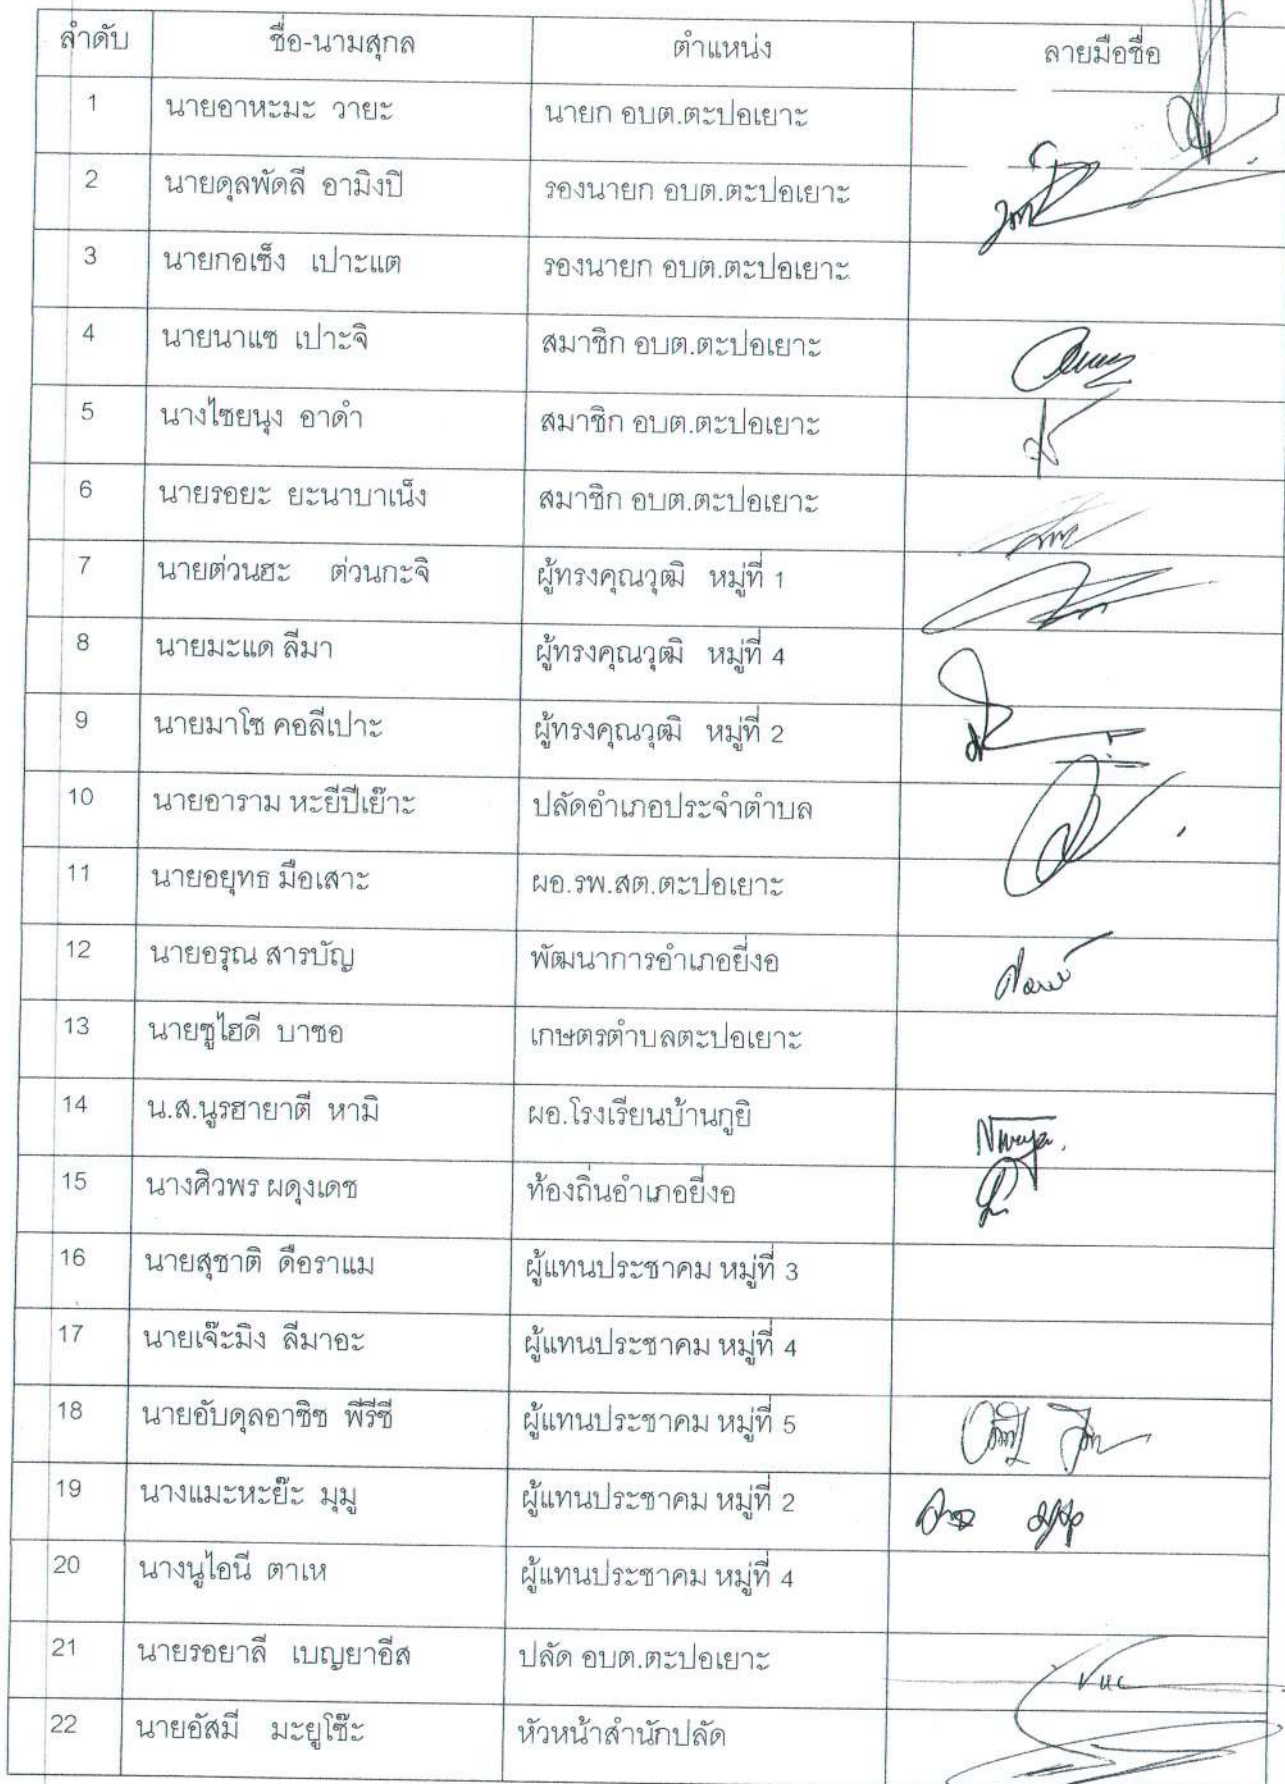 ลำดับ ชื่อ-นามสกุล ตำแหน่ง ลายมือชื่อ
1 นายอาหะมะ วายะ นายก อบต.ตะปอเยาะ
2 นายดุลพัดลี อามิงปิ รองนายก อบต.ตะปอเยาะ
3 นายกอเซ็ง เปาะแต รองนายก อบต.ตะปอเยาะ
4 นายนาแซ เปาะจิ สมาชิก อบต.ตะปอเยาะ
5 นางไซยนุง อาดำ สมาชิก อบต.ตะปอเยาะ
6 นายรอยะ ยะนาบาเน็ง สมาชิก อบต.ตะปอเยาะ
7 นายต่วนฮะ ต่วนกะจิ ผู้ทรงคุณวุฒิ หมู่ที่ 1
8 นายมะแด ลีมา ผู้ทรงคุณวุฒิ หมู่ที่ 4
9 นายมาโซ คอลีเปาะ ผู้ทรงคุณวุฒิ หมู่ที่ 2
10 นายอาราม หะยีปีเย๊าะ ปลัดอำเภอประจำตำบล
11 นายอยุทธ มือเสาะ ผอ.รพ.สต.ตะปอเยาะ
12 นายอรุณ สารบัญ พัฒนาการอำเภอยี่งอ
13 นายซูไฮดี บาซอ เกษตรตำบลตะปอเยาะ
14 น.ส.นูรฮายาตี หามิ ผอ.โรงเรียนบ้านกูยิ
15 นางศิวพร ผดุงเดช ท้องถิ่นอำเภอยี่งอ
16 นายสุชาติ ดือราแม ผู้แทนประชาคม หมู่ที่ 3
17 นายเจ๊ะมิง ลีมาอะ ผู้แทนประชาคม หมู่ที่ 4
18 นายอับดุลอาซิซ พีรีซี ผู้แทนประชาคม หมู่ที่ 5
19 นางแมะหะย๊ะ มุมู ผู้แทนประชาคม หมู่ที่ 2
20 นางนูไอนี ตาเห ผู้แทนประชาคม หมู่ที่ 4
21 นายรอยาลี เบญยาอีส ปลัด อบต.ตะปอเยาะ
22 นายอัสมี มะยูโซ๊ะ หัวหน้าสำนักปลัด